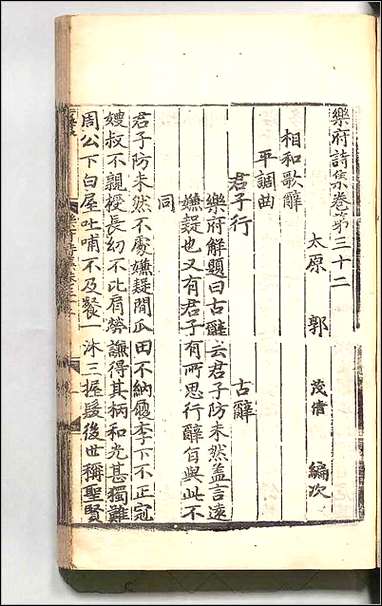 樂府詩集卷第三十二
太原 郭 茂倩 編次
相和歌辭
平調曲
君子行 古辭
樂府解題曰古辭云君子防未然蓋言遠
嫌疑也又有君子有所思行辭旨與此不
同
君子防未然不處嫌疑間瓜田不納履李下不正冠
嫂叔不親授長幼不比肩勞謙得其柄和光甚獨難
周公下白屋吐哺不及餐一沐三握髮後世稱聖賢